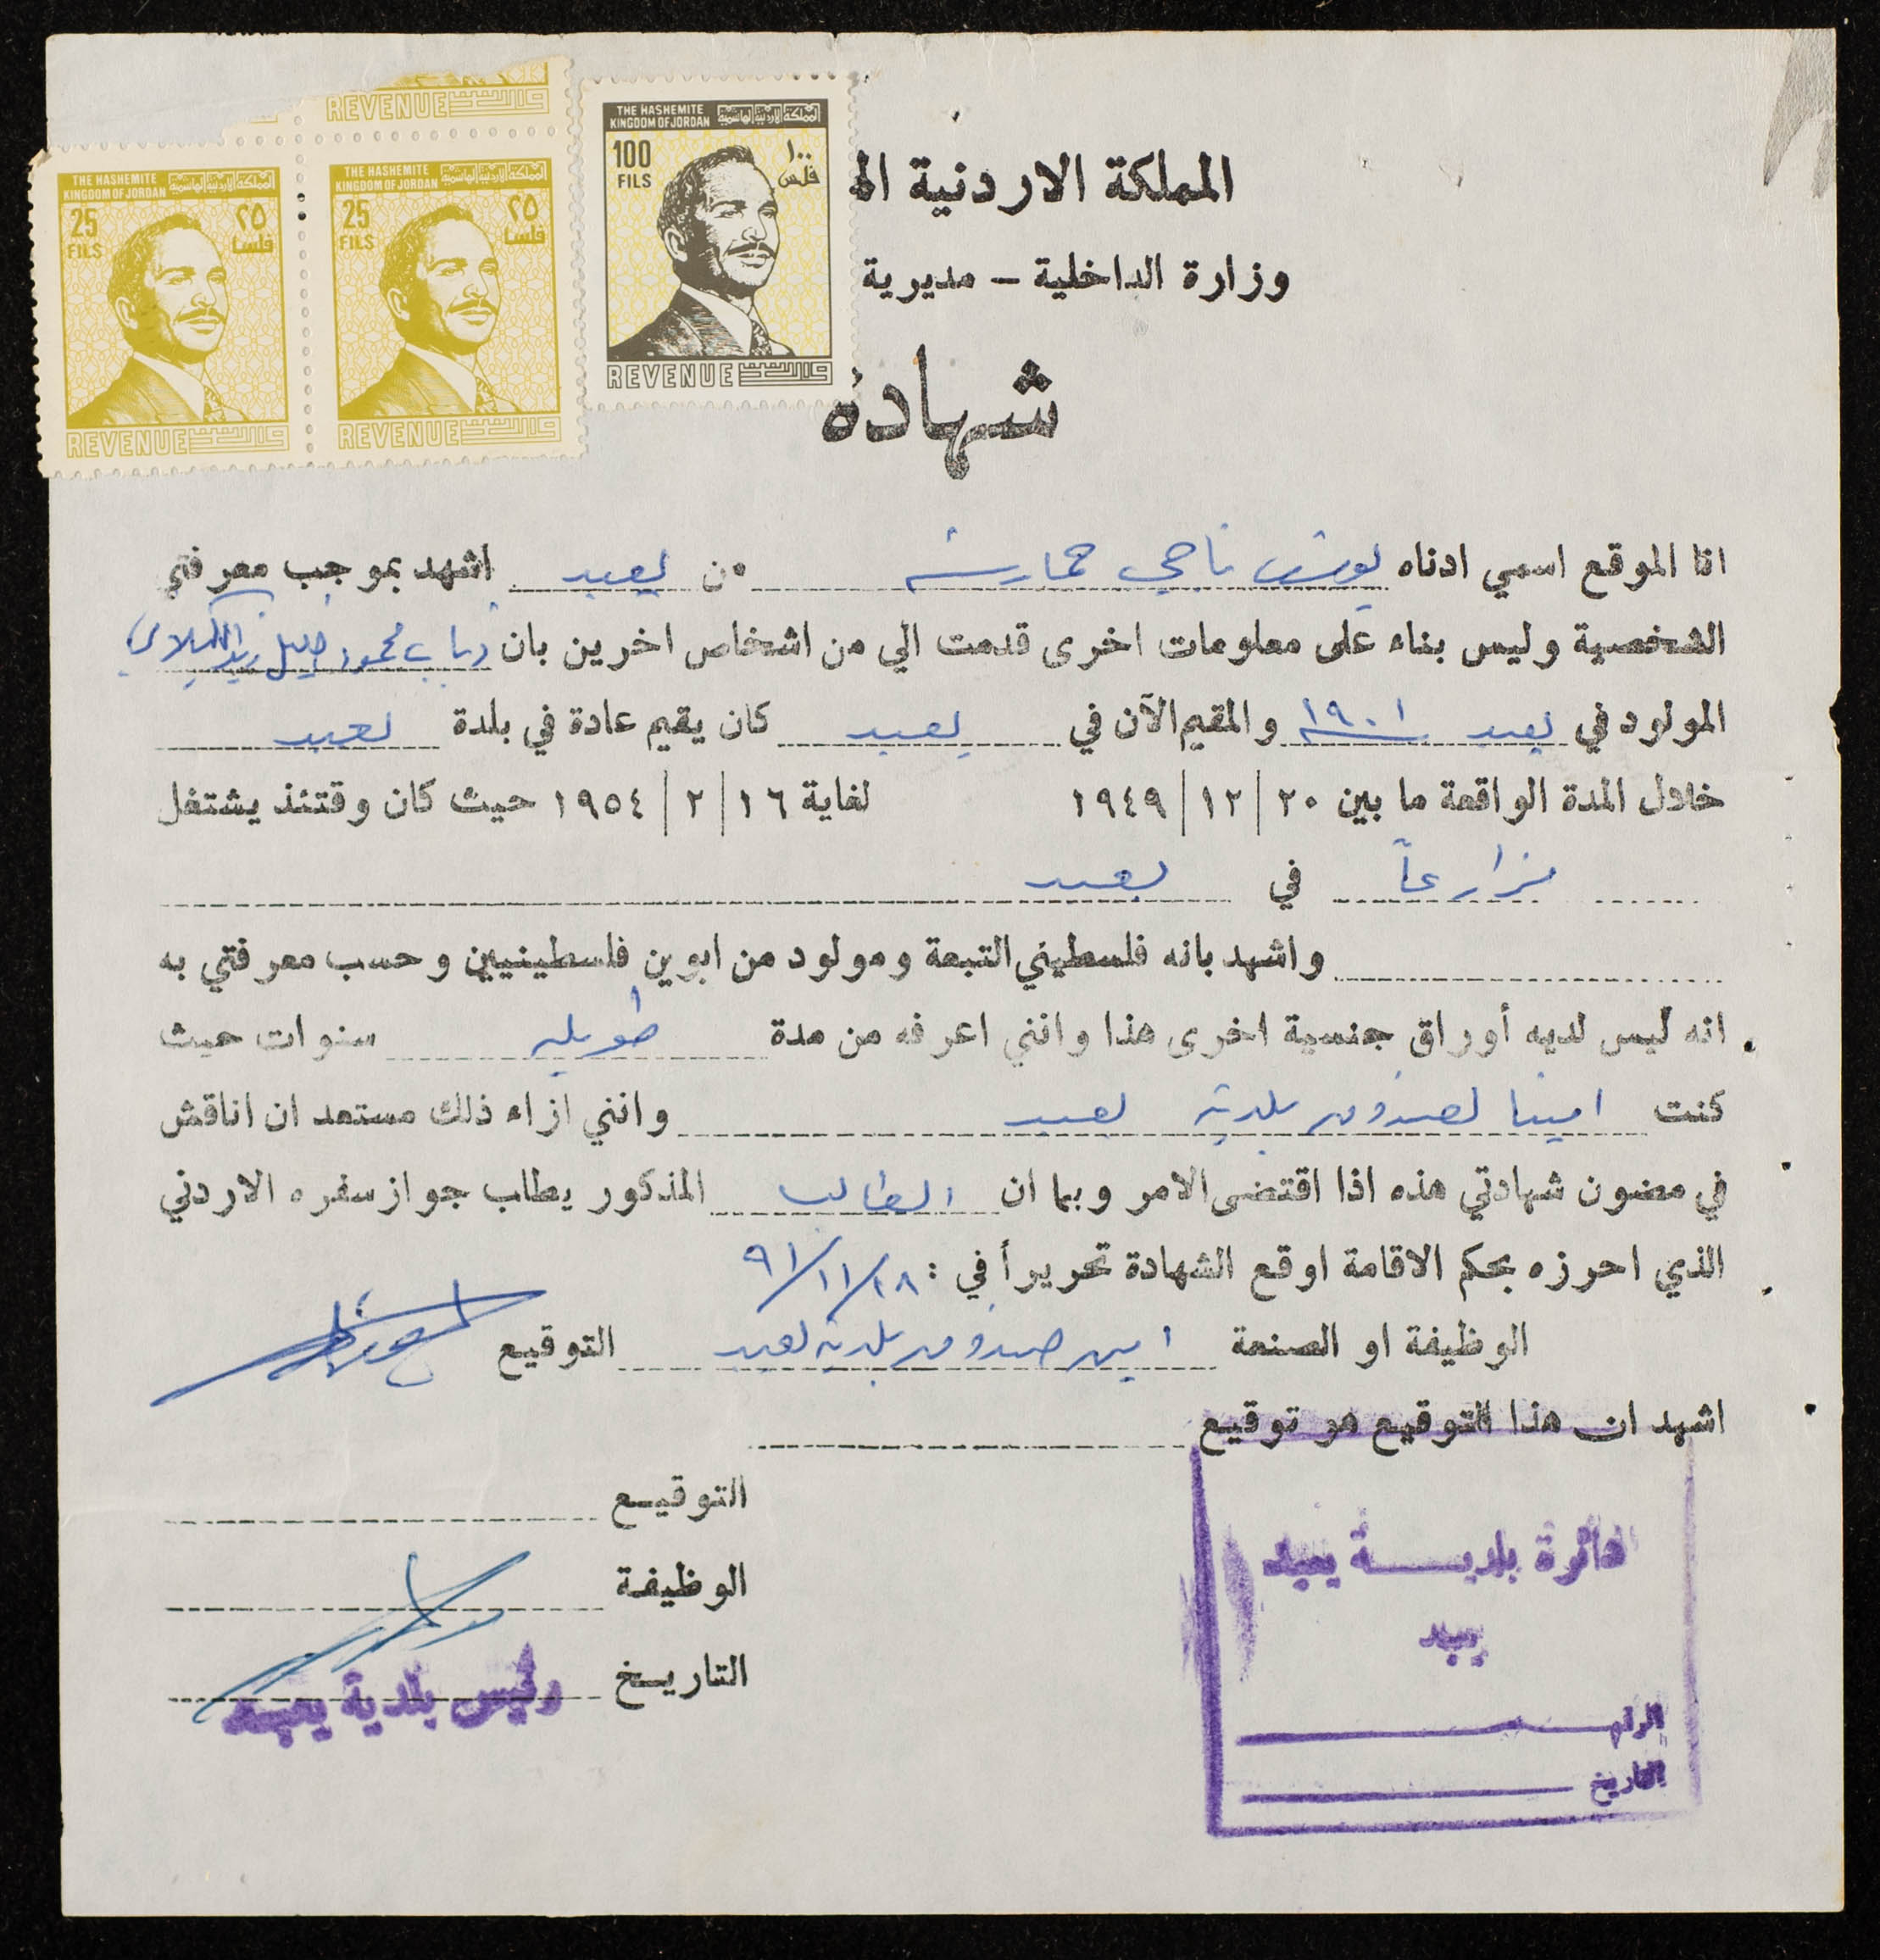 REVENUE
THE HASHEMITE KINGDOM OF JORDAN المملكة الاردنية الهاشمية
25 FILS ٢٥ فلسا
REVENUE واردات
THE HASHEMITE KINGDOM OF JORDAN المملكة الاردنية الهاشمية
25 FILS ٢٥ فلسا
REVENUE واردات
THE HASHEMITE KINGDOM OF JORDAN المملكة الاردنية الهاشمية
100 FILS ١٠٠ فلس
REVENUE واردات
المملكة الاردنية اله
وزارة الداخلية - مديرية
شهادة
انا الموقع اسمي ادناه ناجي حمارشه من يعبد اشهد بموجب معرفتي
الشخصية وليس بناء على معلومات اخرى قدمت الي من اشخاص اخرين بان محمود خليل زيد الكيلاني
المولود في يعبد ١٩٠١ والمقيم الآن في يعبد كان يقيم عادة في بلدة يعبد
خلال المدة الواقعة ما بين ٢٠/١٢/١٩٤٩ لغاية ١٦/٢/١٩٥٤ حيث كان وقتئذ يشتغل
مزارعاً في يعبد
واشهد بانه فلسطيني التبعة ومولود من ابوين فلسطينيين وحسب معرفتي به
انه ليس لديه أوراق جنسية اخرى هذا وانني اعرفه من مدة طويله سنوات حيث
كنت امينا لصندوق بلدية يعبد وانني ازاء ذلك مستعد ان اناقش
في مضون شهادتي هذه اذا اقتضى الامر وبما ان الطالب المذكور يطلب جواز سفره الاردني
الذي احرزه بحكم الاقامة اوقع الشهادة تحريراً في : ١٨/١١/٩١
الوظيفة او الصنعة امين صندوق بلدية يعبد التوقيع
اشهد ان هذا التوقيع هو توقيع
التوقيع
الوظيفة
التاريخ
رئيس بلدية يعبد
دائرة بلدية يعبد
يعبد
الرقم
التاريخ